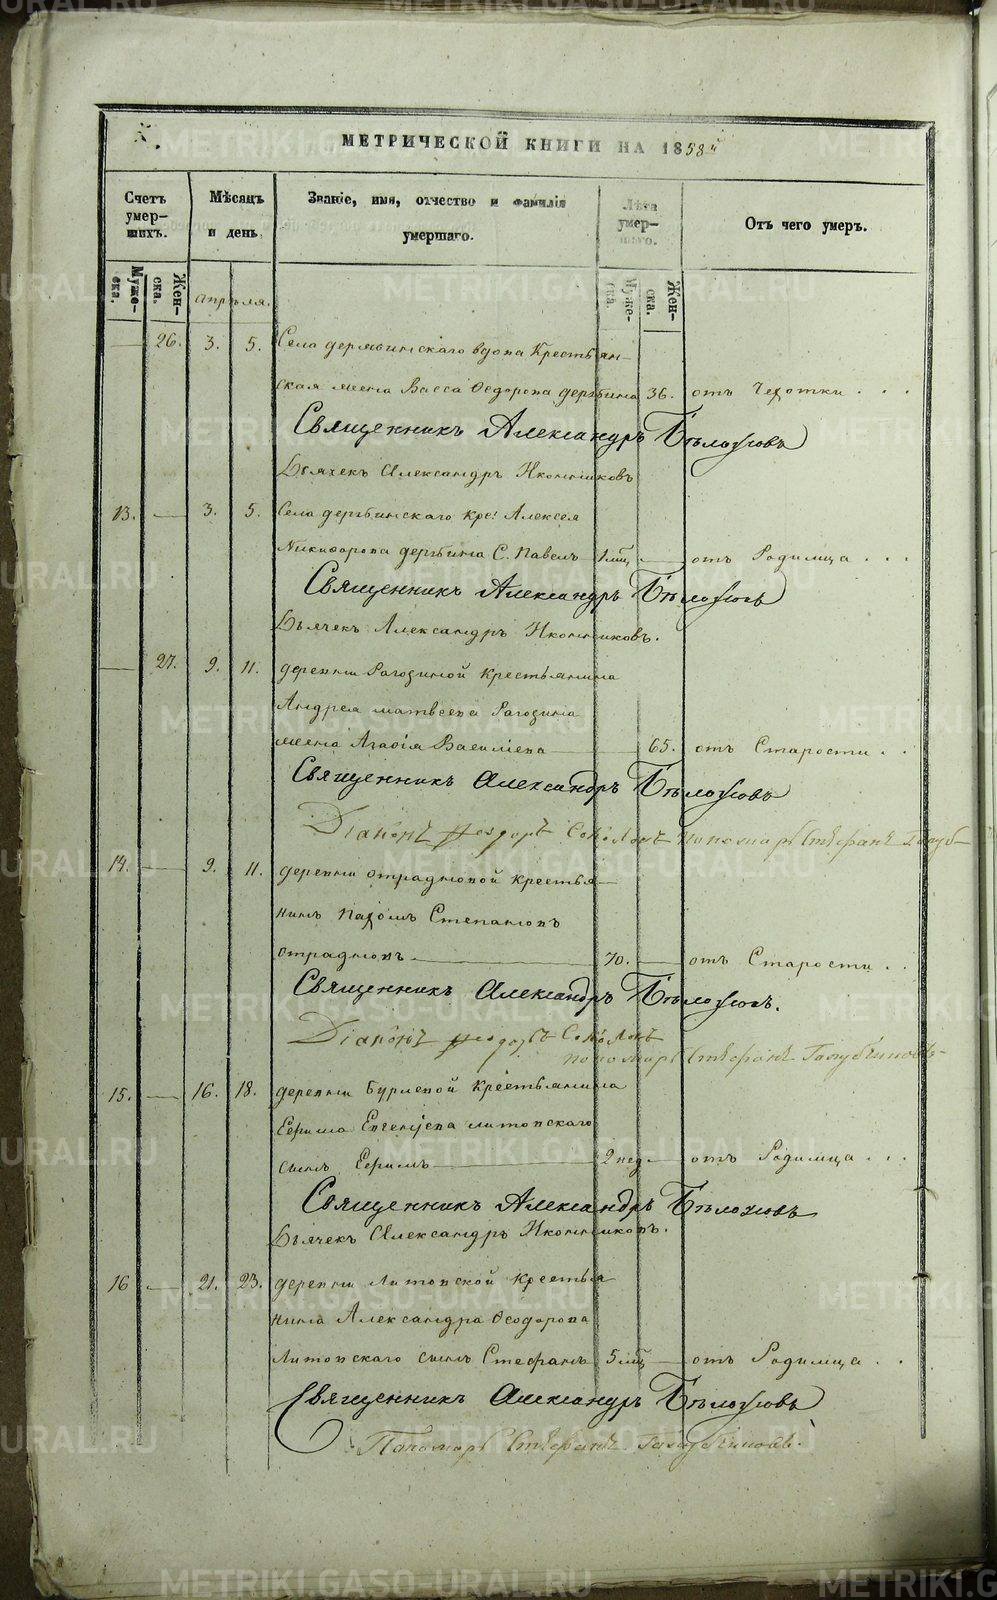 МЕТРИЧЕСКОЙ КНИГИ НА 1858й
Счетъ умер-шихъ.
Мѣсяцъ и день.
Званіе, имя, отчество и фамилія умершаго.
Лѣта умер-шаго.
Отъ чего умер.
Муже-ска. Жен-ска.
Апрѣля.
Муже-ска. Жен-ска.
— 26. 3. 5. Села дерябинскаго вдова Крестьян-
ская жена Васса Ѳедорова дерябина 36. отъ Чехотки . . .
Священникъ Александръ Бѣлоусовъ
Дьячекъ Александръ Иконниковъ
13. — 3. 5. Села дерябинскаго Кре: Алексея
Никифорова дерябина С. Павелъ 1 мц — отъ Родимца . . .
Священникъ Александръ Бѣлоусовъ
Дьячекъ Александръ Иконниковъ.
— 27. 9. 11. деревни Рагозиной Крестьянина
Андрея матвеева Рагозина
жена Агафія Васильева — 65. отъ Старости . .
Священникъ Александръ Бѣлоусовъ
Діаконъ Феодоръ Соколовъ Пономарь Стефанъ Голуб-
14. — 9. 11. деревни отрадновой крестья-
нинъ Пахомъ Степановъ
отрадновъ — 70. — отъ Старости . .
Священникъ Александръ Бѣлоусовъ.
Діаконъ Феодоръ Соколовъ
пономарь Стефанъ Голубчиковъ
15. — 16. 18. деревни Бурлевой Крестьянина
Ефима Евгеніева литовскаго
сынъ Ефимъ — 2 нед — отъ Родимца . . .
Священникъ Александръ Бѣлоусовъ
Дьячекъ Александръ Иконниковъ.
16 — 21. 23. деревни Литовской Крестья
нина Александра Ѳеодорова
Литовскаго сынъ Стефанъ 5 мц — отъ Родимца . .
Священникъ Александръ Бѣлоусовъ
Пономарь Стефанъ Голубчиковъ.
METRIKI.GASO-URAL.RU